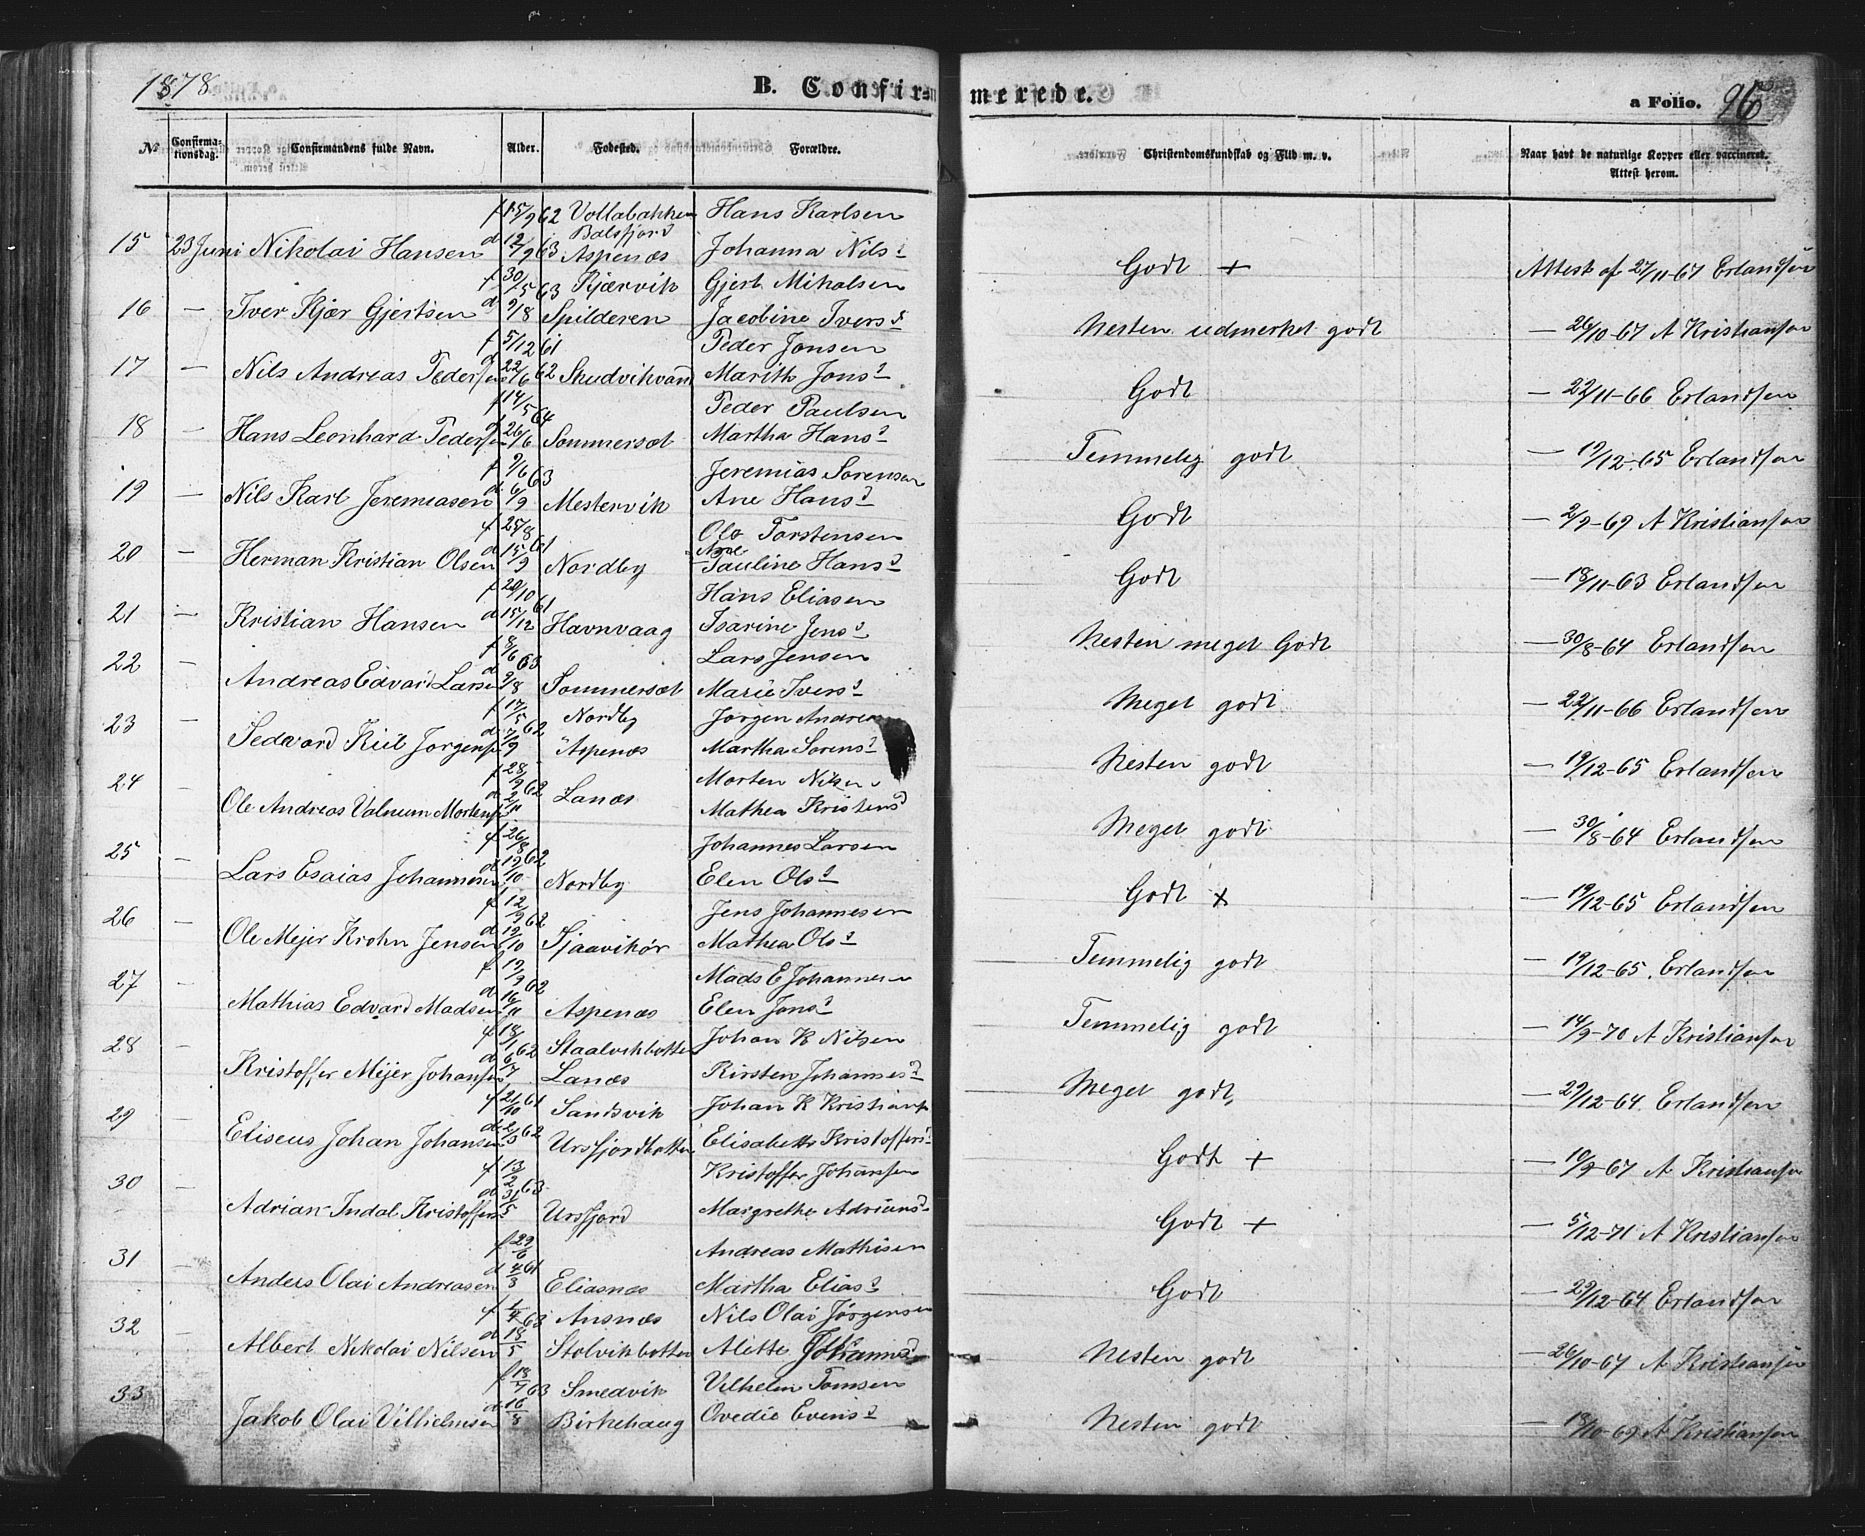 1878 B. Confirmerede. a Folio. 96
No Confirmationsdag. Confirmandens fulde Navn. Alder. Fødested. Forældre. Christendomskundskab og Flid m. v. Naar havt de naturlige Kopper eller vaccineret. Attest herom.
f 15/9 62 Vollabakken Hans Karlsen
Balsfjord
15 23 Juni Nikolai Hansen d 12/9 63 Aspenæs Johanna Nilsd Godt + Attest af 27/11-67 Erlandsen
f 30/5 63 Kjærvik Gjert Mikalsen
16 — Iver Kjær Gjertsen d 9/8 Spilderen Jacobine Iversd Nesten udmerket godt — 26/10-67 A Kristiansen
f 5/12 61 Peder Jonsen
17 — Nils Andreas Pedersen d 22/6 62 Skudvikvand Marith Jonsd Godt — 22/11-66 Erlandsen
f 14/5 64 Peder Paulsen
18 — Hans Leonhard Pedersen d 26/6 Sommersæt Martha Hansd Temmelig godt — 19/12-65 Erlandsen
f 9/6 63 Jeremias Sørensen
19 — Nils Karl Jeremiasen d 6/9 Mestervik Ane Hansd Godt — 2/9-69 A Kristiansen
f 25/8 Ole Torstensen
20 — Herman Kristian Olsen d 15/9 61 Nordby Ane Pauline Hansd Godt — 18/11-63 Erlandsen
f 20/10 Hans Eliasen
21 — Kristian Hansen d 15/12 61 Havnvaag Isarine Jensd Nesten meget Godt — 30/8-64 Erlandsen
f 8/6 63 Lars Jensen
22 — Andreas Edvard Larsen d 9/8 Sommersæt Marie Iversd Meget godt — 22/11-66 Erlandsen
f 17/5 Nordby Jørgen Andrea
23 — Sedvard Kiil Jørgens d 7/9 62 Aspenæs Martha Sørensd Nesten godt — 19/12-65 Erlandsen
f 28/9 62 Morten Nilsen
24 — Ole Andreas Valnum Mortens d 2/11 Lanæs Mathea Kristensd Meget godt — 30/8-64 Erlandsen
f 26/8 Johannes Larsen
25 — Lars Esaias Johannesen d 19/10 62 Nordby Elen Olsd Godt + — 19/12-65 Erlandsen
f 12/9 62 Jens Johannesen
26 — Ole Mejer Krohn Jensen d 19/10 Sjaavikør Mathea Olsd Temmelig godt — 19/12-65 Erlandsen
f 19/9 62 Mads E Johannesen
27 — Mathias Edvard Madsen d 16/11 Aspenæs Elen Jonsd Temmelig godt — 14/9-70 A Kristiansen
f 18/1 62 Staalvikbotten Johan K Nilsen
28 — Kristoffer Mejer Johansen d 6/7 Lanæs Kirsten Johannesd Meget godt, — 29/12-64 Erlandsen
f 21/10 61 Sandsvik Johan K Kristians
29 — Eliseus Johan Johansen d 2/3 62 Ursfjordbotten Elisabeth Kristoffersd Godt + — 10/9-67 A Kristiansen
f 13/2 Kristoffer Johansen
30 — Adrian Indal Kristoffers d 31/5 63 Ursfjord Margrethe Adriansd Godt + — 5/12-71 A Kristiansen
f 29/6 Andreas Mathisen
31 — Anders Olai Andreasen d 4/3 61 Eliasnæs Martha Eliasd Godt — 29/12-64 Erlandsen
f 1/4 63 Ansnæs Nils Olai Jørgensen
32 — Albert Nikolai Nilsen d 18/5 Stolvikbotten Alette Johannesd Nesten godt — 26/10-67 A Kristiansen
f 18/4 63 Smedvik Vilhelm Tomsen
33 — Jakob Olai Vilhelmsen d 16/8 Birkehaug Ovedie Evensd Nesten godt — 18/10-69 A Kristiansen